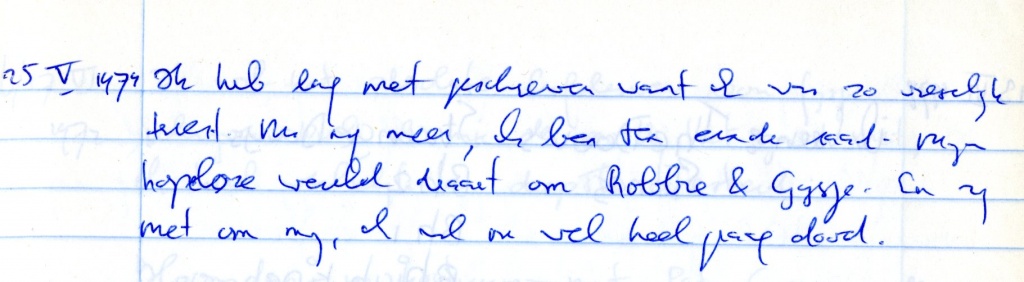 25 V 1974 Ik heb lang niet geschreven want ik was zo vreselijk
triest. Nu nog meer, ik ben ten einde raad. Mijn
hopeloze wereld draait om Robbie & Gijsje. En zij
niet om mij, ik wil nu wel heel graag dood.